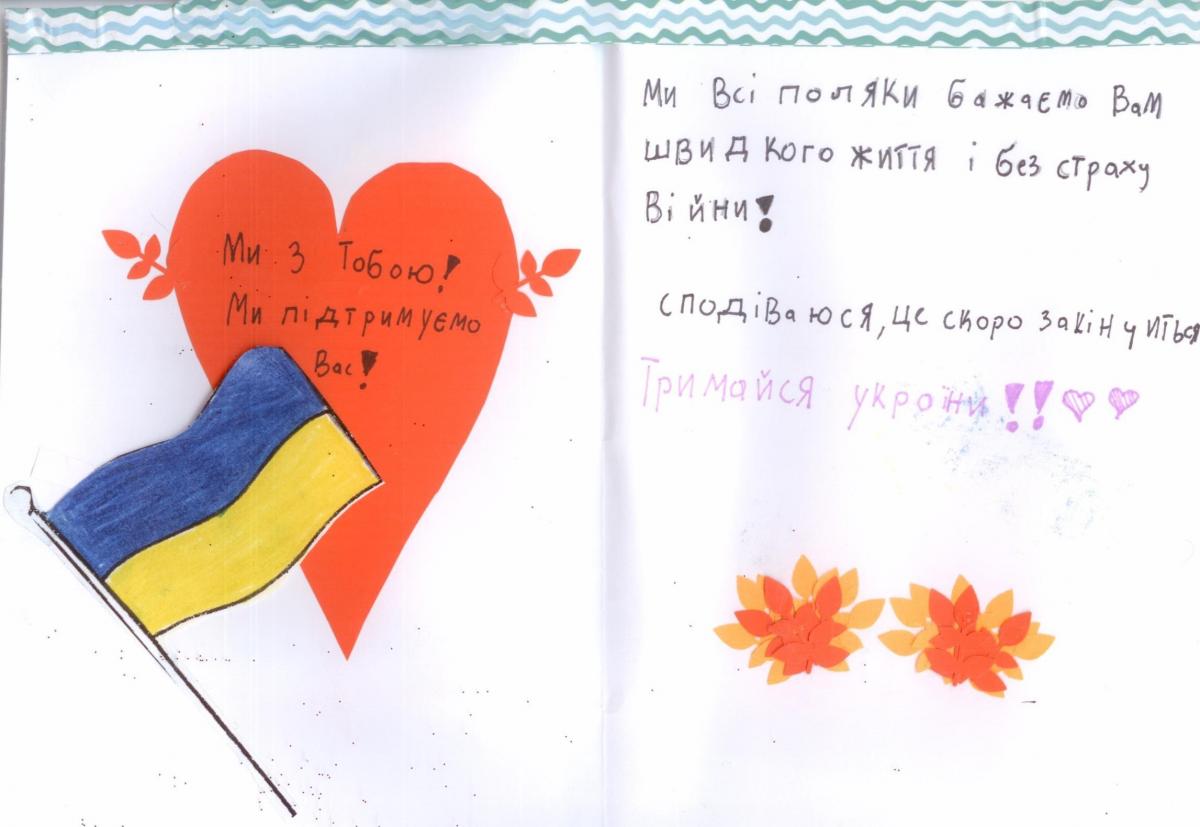 Ми з Тобою!
Ми підтримуємо
Вас!
Ми Всі поляки бажаємо Вам
швидкого життя і без страху
Війни!
сподіваюся, це скоро закінчиться
Тримайся україни!!